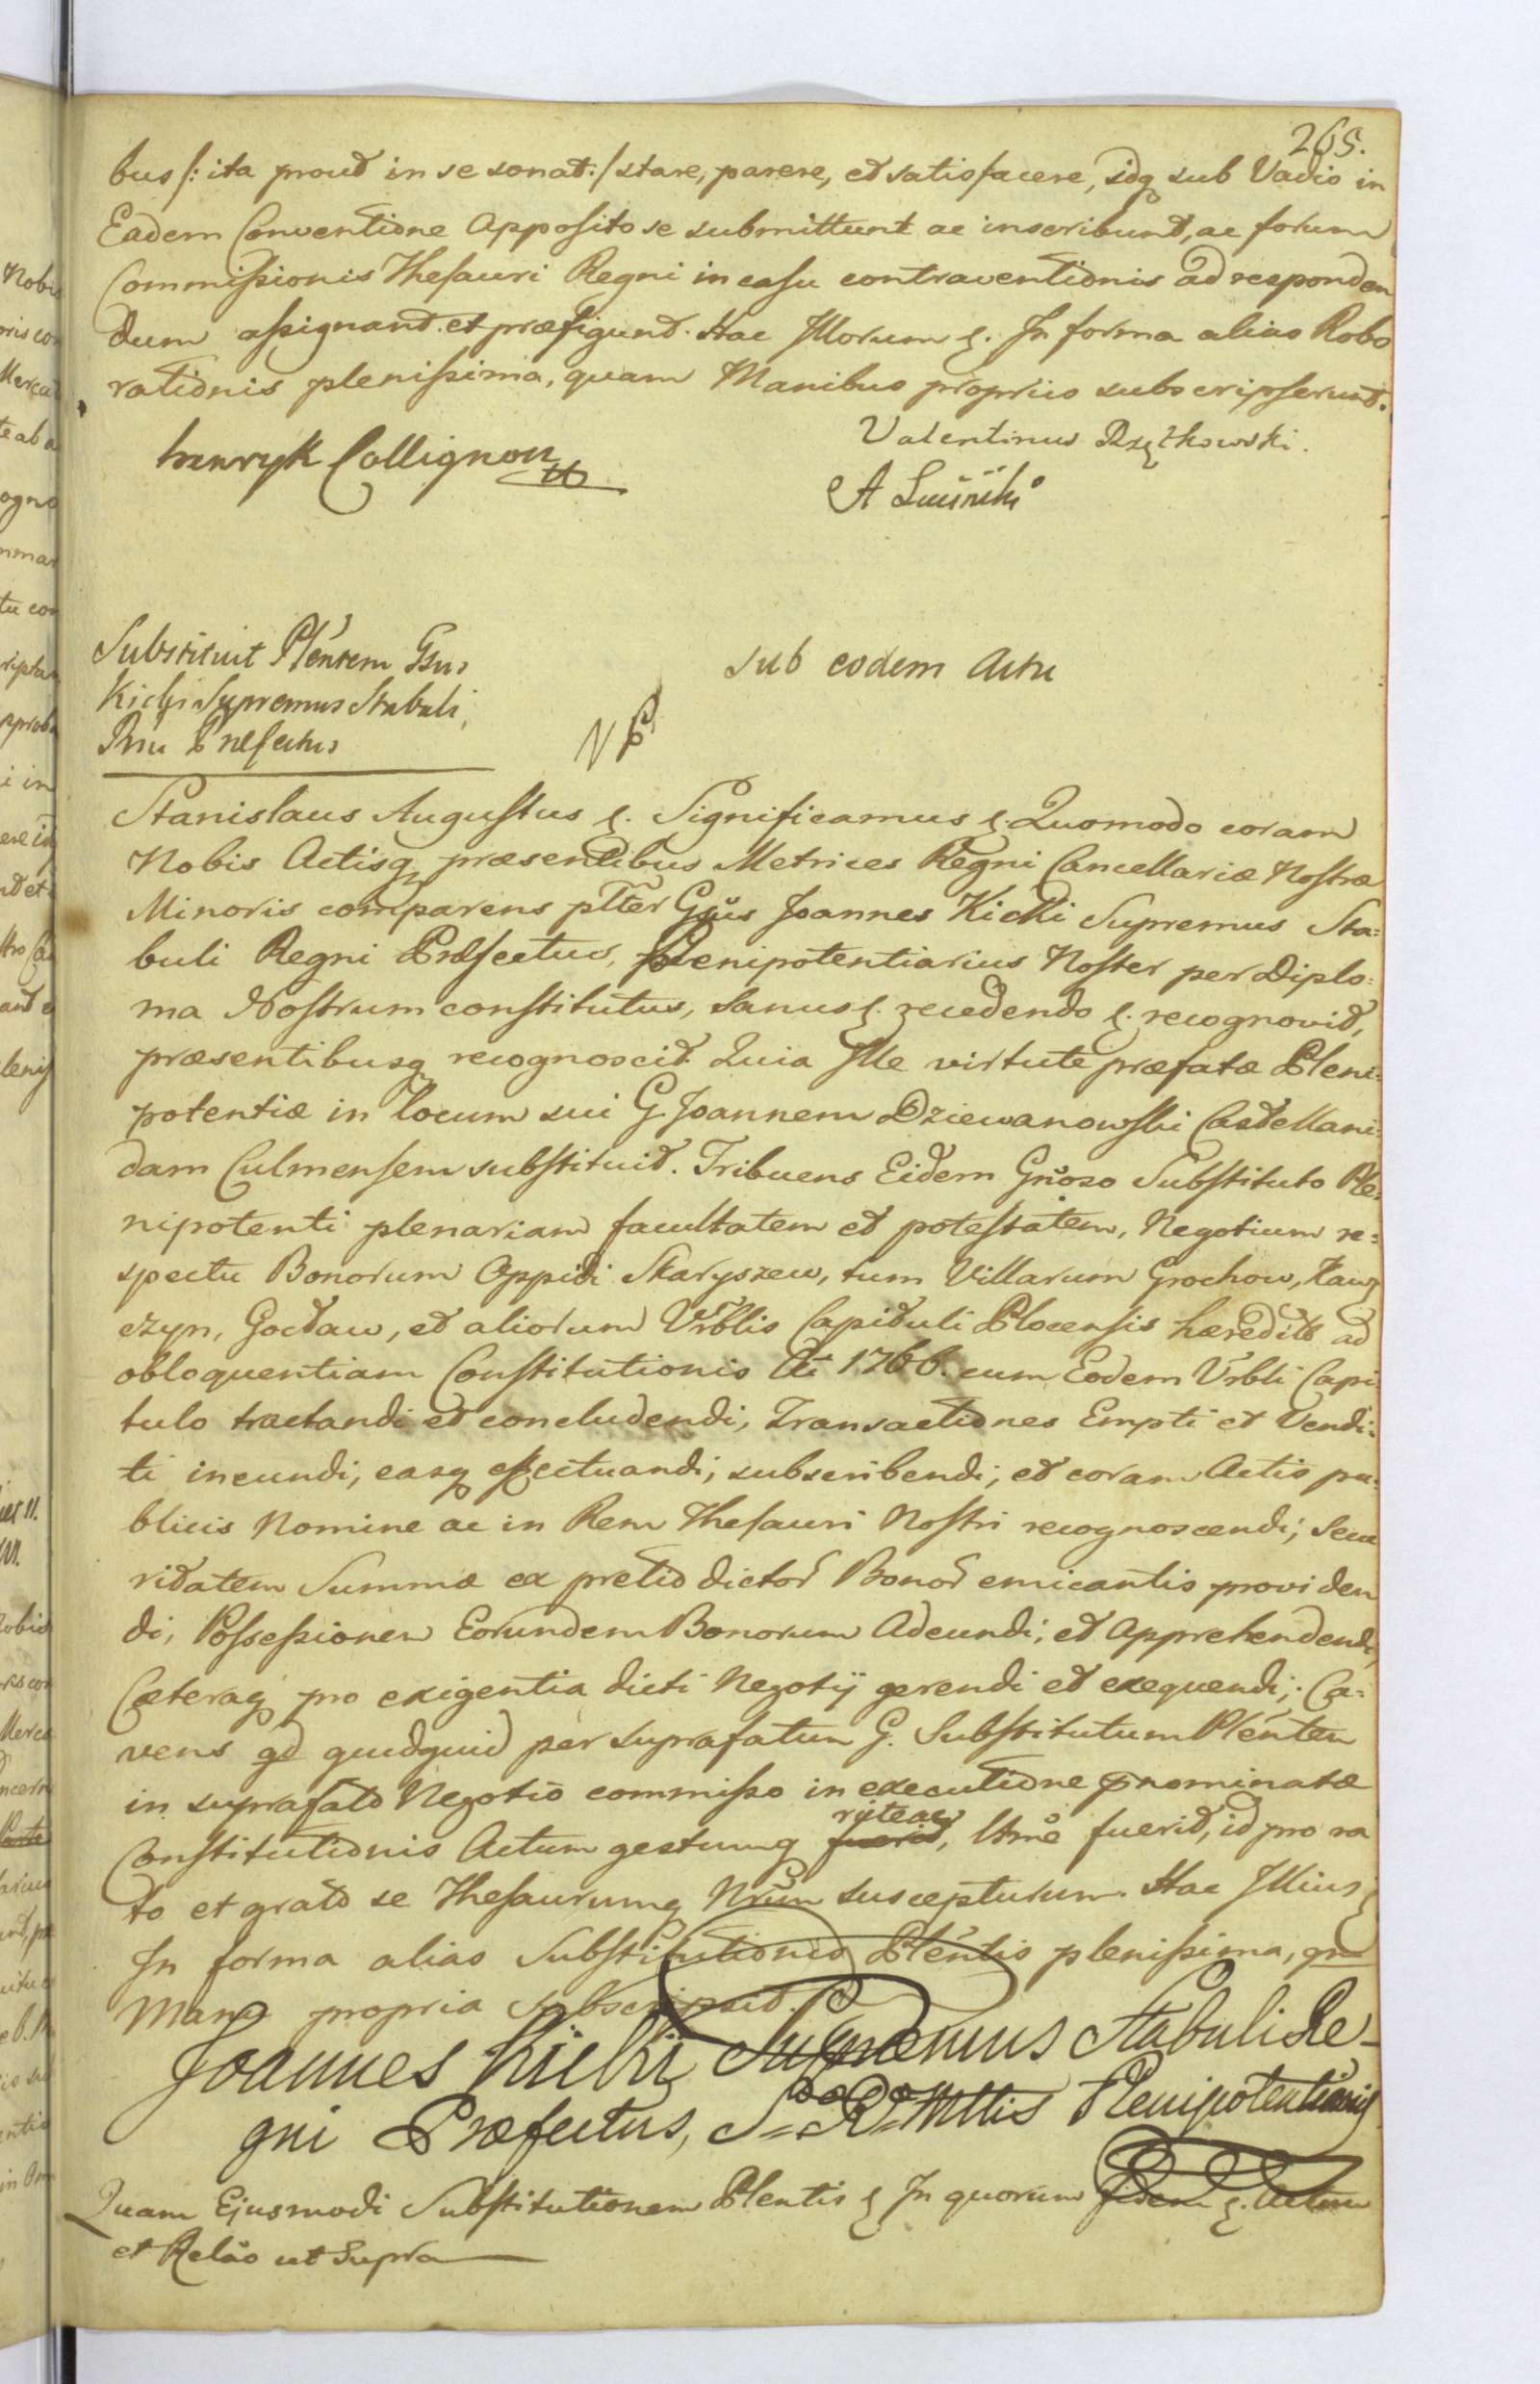 265.
bus /: ita prout in se sonat :/ stare, parere, et satisfacere, idq sub Vadio in
Eadem Conventione Apposito se submittunt ac inscribunt, ac forum
Commissionis Thesauri Regni in casu contraventionis ad responden
dum assignant et præfigunt. Hac Illorum &. In forma alias Robo
rationis plenissima, quam Manibus propriis subscripserunt.
Valentinus Rzętkowski.
henryk Collignon
A
Substituit Plentem Gsus
Kicki Supremus Stabuli
Rni Præfectus
sub eodem Actu
Stanislaus Augustus &. Significamus &. Quomodo coram
Nobis Actisq præsentibus Metrices Regni Cancellariæ Nostræ
Minoris comparens plter Gsus Joannes Kicki Supremus Sta:
buli Regni Præfectus, Plenipotentiarius Noster per Diplo:
ma Nostrum constitutus, Sanus &. recedendo &. recognovit,
præsentibusq recognoscit. Quia Ille virtute præfatæ Pleni:
potentiæ in locum sui G. Joannem Dziewanowski Castellani:
dam Culmensem substituit. Tribuens Eidem Gnoso Substituto Ple:
nipotenti plenariam facultatem et potestatem, Negotium re:
spectu Bonorum Oppidi Skaryszew, tum Villarum Grochow, Kaw
czyn, Gocław, et aliorum Vrblis Capituli Plocensis hæredit ad
obloquentiam Constitutionis Ai 1766. cum Eodem Vrbli Capi
tulo tractandi et concludendi, Transactiones Empti et Vendi:
ti ineundi, easq effectuandi, subscribendi, et coram Actis pu:
blicis Nomine ac in Rem Thesauri Nostri recognoscendi; Secu
ritatem Summæ ex pretio dictor Bonor emicantis providen
di, Possessionem Eorundem Bonorum Adeundi, et Apprehendendi,
Cæteraq pro exigentia dicti Negotij gerendi et exequendi; Ca:
vens qd quidquid per suprafatum G. Substitutum Plenten
in suprafato Negotio commisso in executione prænominatæ
Constitutionis Actum gestumq fuerit, riteac ltme fuerit, id pro ra
to et grato se Thesaurumq Nrum suscepturum. Hac Illius &
In forma alias Substitutionis Plentis plenissima, qm
Manu propria subscripsit.
Joannes Kicki Supremus Stabuli Re-
gni Præfectus, S=R=Mttis Plenipotentiariq
Quam Ejusmodi Substitutionem Plentis & In quorum fidem &. Actum
et Relao ut Supra